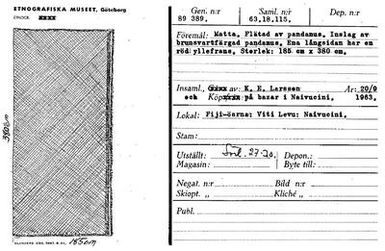 ETNOGRAFISKA MUSEET, Göteborg
380cm
185cm
Gen. n:r
89 389.
Saml. n:r
63.18.115.
Dep. n:r
Föremål: Matta. Flätad av pandanus. Inslag av
brunsvartfärgad pandanus. Ena långsidan har en
röd yllefrans. Storlek: 185 cm x 380 cm.
Insaml. av K. E. Larsson År: 20/9
och Köp på bazar i Naivucini. 1963.
Lokal: Fiji-öarna: Viti Levu: Naivucini.
Stam:
Utställt: 27-70. Depon.:
Magasin: Byte till:
Negat. n:r Bild n:r
Skiopt. „ Kliché „
Publ.